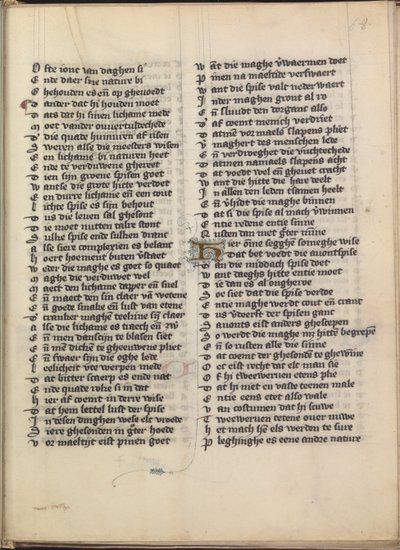 Ofte iont van daghen si
Ende daer sine nature bi
Ghehouden es en op gheuoedt
Dander dat hi houden moet
Dats dat hi sinen lichame mede
Moet vander ouuertulledichede
Die quade humuren af risen
Sweren alle die meesters wisen
Een lichame bi naturen heet
Ende te verduwene ghereet
Dien sijn groene spisen goet
Want die grote hitte verdoet
Een durre lichame en een out
Lichte spise es sijn behout
Dus die leuen sal ghesont
Die moet nutten talre stont
Sulke spise ende sulken dranc
Alse siere complexien es belanc
Hoert hoement buten verstaet
Weder die maghe es goet so quaet
Maghe die verduwet wel
Maect den lichame dapper en snel
En maect den sin claer van vetene
En goede smake en lust van etene
Crancker maghe teelkine sijn claer
Alse die lichame es traech en zwaer
En men danscijn te blasen siet
En men dicke te gheeuwene pliet
En swaer sijn die oghe lede
Leelicheit vte werpen mede
Dat bitter scaerp es ende nat
Ende quade roke si in dat
Hier af coemt in derre wise
Dat hem lettel lust der spise
In desen dinghen wese elc vroede
Siere ghesonden in goeder hoede
Vor maeltijt eist pinen goet
Want die maghe verwaermen doet
Pinen na maeltide verswaert
Want die spise valt nederwaert
Inder maghen gront al ro
En sluudt den dorgant also
Daer af coemt menich verdriet
Datmen vormaels slapens pliet
Vermaghert des menschen lede
En verdroeghet die vuchtechede
Datmen namaels slapens acht
Dat voedt wel en gheuet cracht
Want die hitte die hare deelt
In allen den leden tsamen heelt
En verhidt die maghe binnen
Dat si die spise al mach verwinnen
Entie redene entie sinne
Rusten dan met groter minne
Hier omme segghe someghe wise
Dat bet voedt die auontspise
Dan die middach spise doet
Want daeghs hitte entie moet
Die dan es al onghevee
Doe siet dat die spise verdoe
Entie maghe werdt cout en cranc
Dus verderft der spisen ganc
Sauonts eist anders gheslepen
So werdt die maghe met hitten begrepen
En so rusten alle die sinne
Dat coemt der ghesonde te ghewinne
Oec eist recht dat elc man sie
Of hi tweewaeruen etens plie
Dat hi niet en vaste teenen male
Entie eens etet also wale
Van costumen dat hi scuwe
Tweewaeruen etene ouer nuwe
Het mach hem els werden te sure
Pleghinghe es eene andre nature